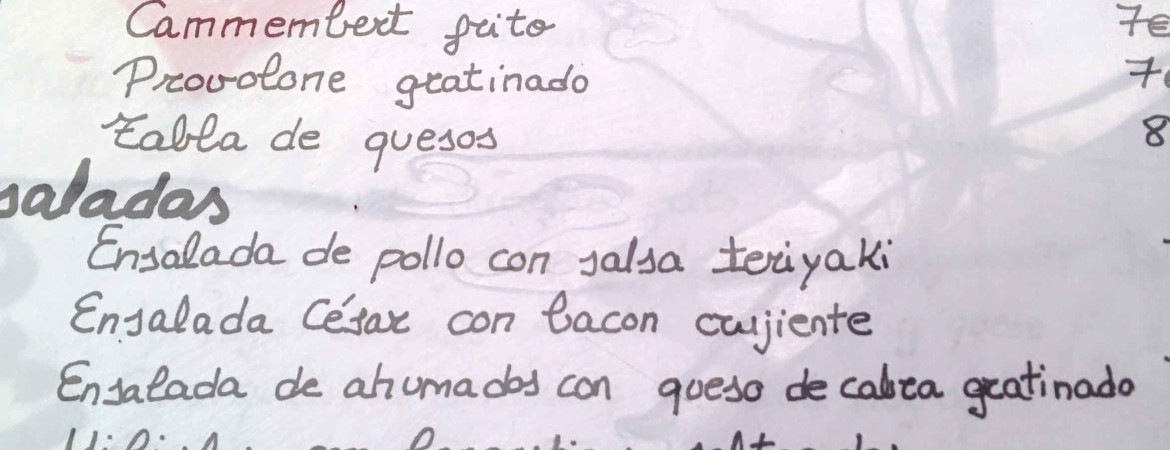 Cammembert frito 7€
Provolone gratinado 7€
Tabla de quesos 8
saladas
Ensalada de pollo con salsa teriyaki
Ensalada César con bacon crujiente
Ensalada de ahumados con queso de cabra gratinado
con